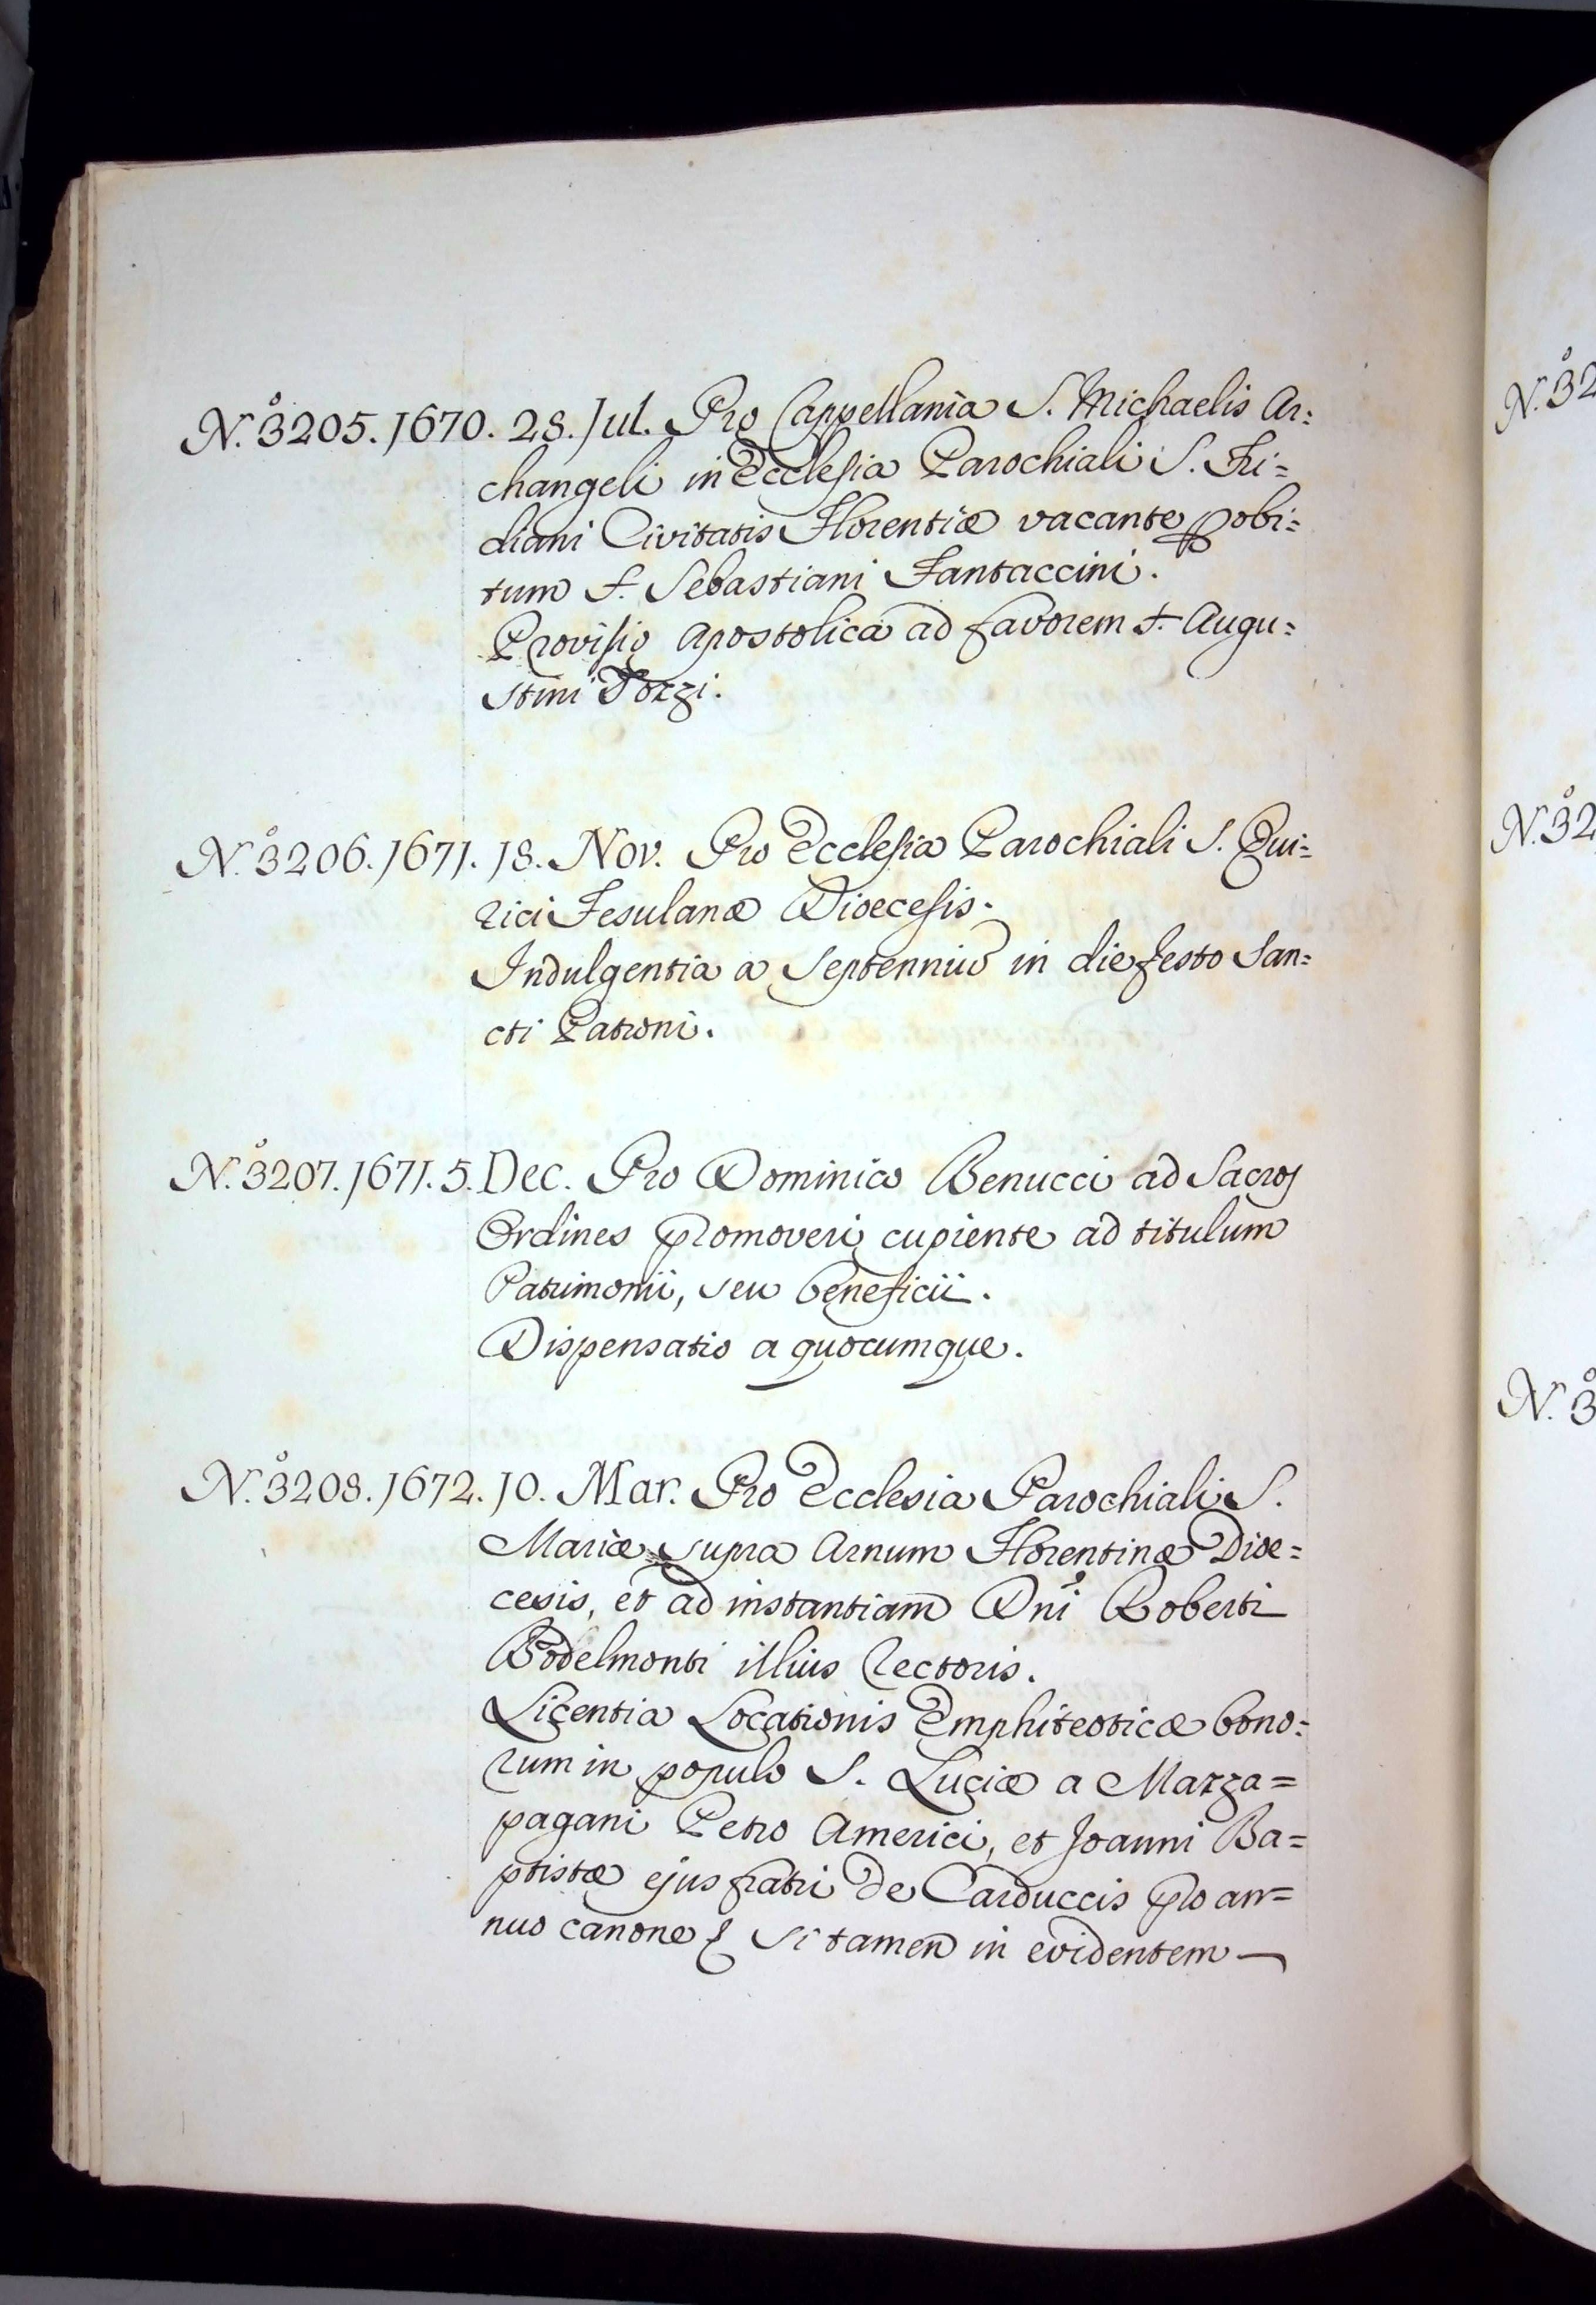 N.º 3205. 1670. 28. Jul. Pro Cappellania S. Michaelis Ar=
changeli in Ecclesia Parochiali S. Fri=
diani Civitatis Florentiæ vacante p obi=
tum S. Sebastiani Fantaccini.
Provisio Apostolica ad favorem S. Augu=
stini Tozzi.
N.º 3206. 1671. 18. Nov. Pro Ecclesia Parochiali S. Qui=
rici Fesulanæ Dioecesis.
Indulgentia a Septennio in die festo San=
cti Patroni.
N.º 3207. 1671. 5. Dec. Pro Dominico Benucci ad Sacros
Ordines promoveri cupiente ad titulum
Patrimonii, seu beneficii.
Dispensatio a quocumque.
N.º 3208. 1672. 10. Mar. Pro Ecclesia Parochiali S.
Mariæ supra Arnum Florentinæ Dioe=
cesis, et ad instantiam Dni Roberti
Bodelmonti illius Rectoris.
Licentia Locationis Emphiteoticæ bono=
rum in populo S. Luciæ a Mazza=
pagani Petro Americi, et Joanni Ba=
ptistæ ejus fratri de Carduccis pro an=
nuo canone & si tamen in evidentem
N.º 32
N.º 32
N.º 3